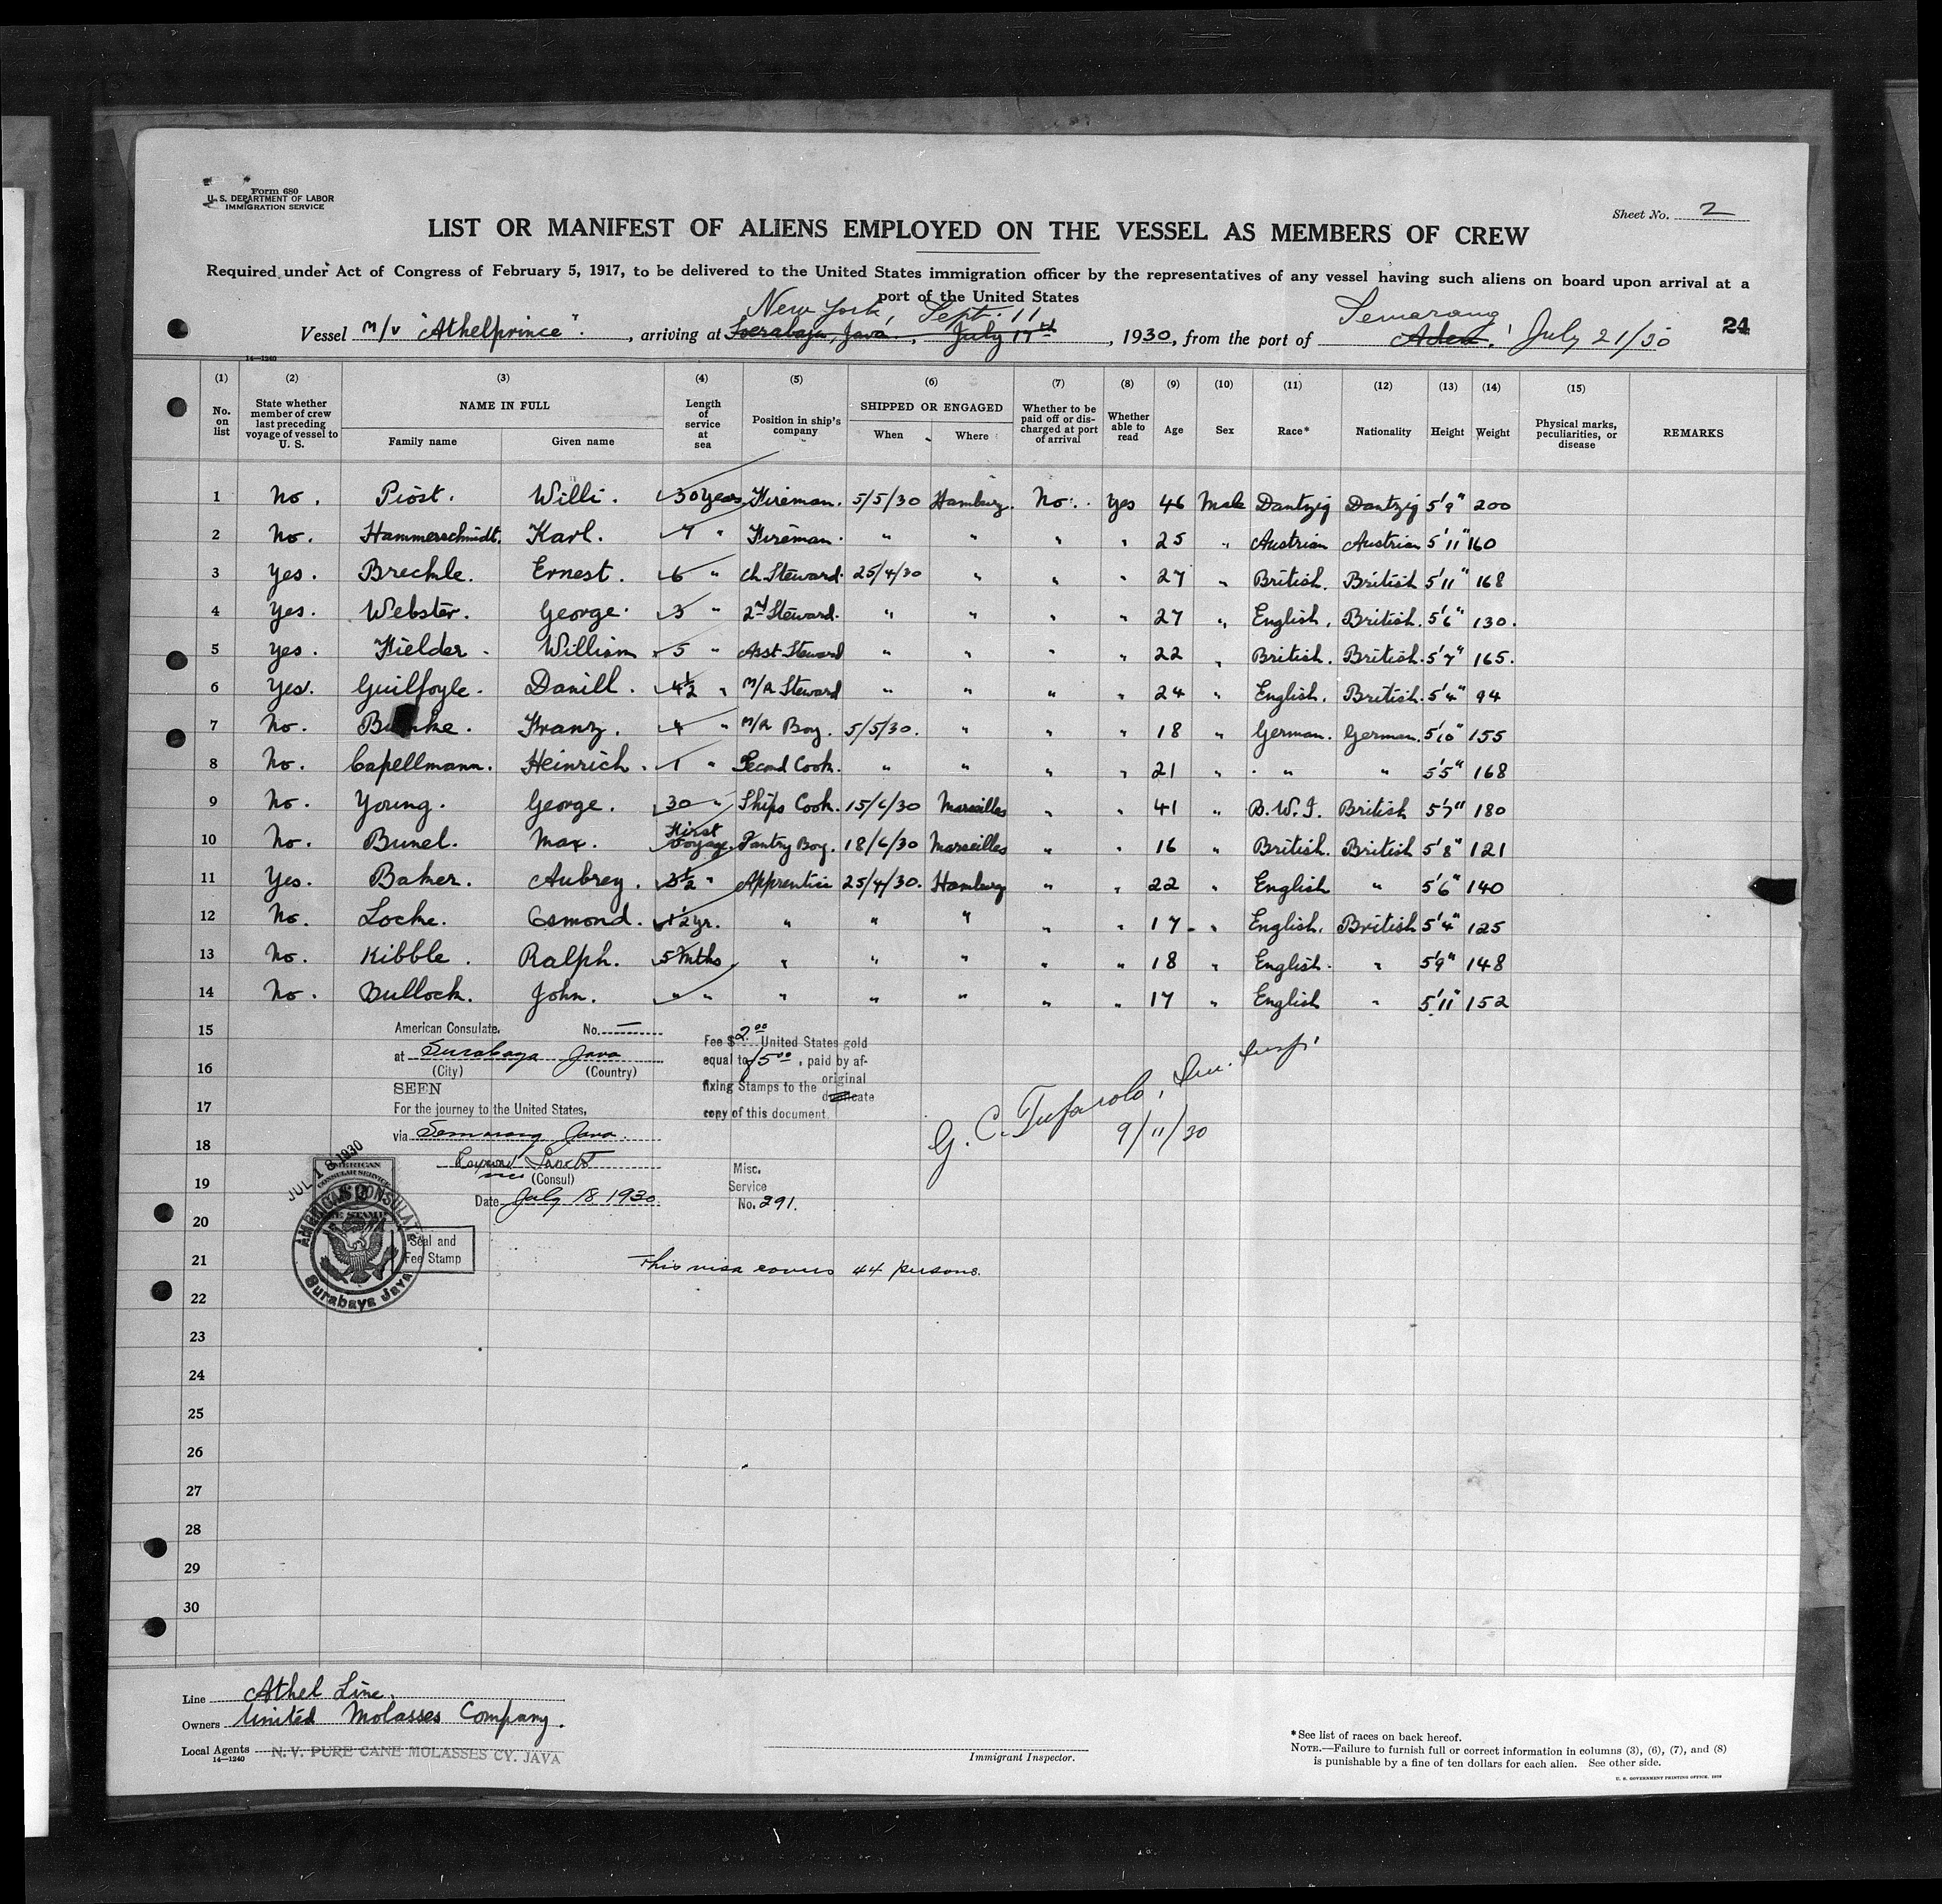 Form 680
U. S. DEPARTMENT OF LABOR
IMMIGRATION SERVICE
Sheet No. 2
LIST OR MANIFEST OF ALIENS EMPLOYED ON THE VESSEL AS MEMBERS OF CREW
Required under Act of Congress of February 5, 1917, to be delivered to the United States immigration officer by the representatives of any vessel having such aliens on board upon arrival at a
port of the United States
New York, Sept. 11 Semarang
Vessel m/v "Athelprince". , arriving at Soerabaja, Java , July 17th , 1930, from the port of Aden, July 21/30 24
14—1240
(1) (2) (3) (4) (5) (6) (7) (8) (9) (10) (11) (12) (13) (14) (15)
No. on list State whether member of crew last preceding voyage of vessel to U. S. NAME IN FULL Family name Given name Length of service at sea Position in ship's company SHIPPED OR ENGAGED When Where Whether to be paid off or discharged at port of arrival Whether able to read Age Sex Race* Nationality Height Weight Physical marks, peculiarities, or disease REMARKS
1 No. Piost. Willi. 30 years Fireman. 5/5/30 Hamburg. No. Yes 46 Male Dantzig Dantzig 5'9" 200
2 No. Hammerschmidt. Karl. 7 " Fireman. " " " " 25 " Austrian Austrian 5'11" 160
3 Yes. Brechle. Ernest. 6 " Ch. Steward. 25/4/30 " " " 27 " British. British 5'11" 168
4 Yes. Webster. George. 3 " 2nd Steward. " " " " 27 " English. British. 5'6" 130.
5 Yes. Fielder. William 5 " Asst Steward " " " " 22 " British. British. 5'7" 165.
6 Yes. Guilfoyle. Danill. 4½ " M/R Steward " " " " 24 " English. British. 5'4" 94
7 No. Franz. 4 " M/R Boy. 5/5/30. " " " 18 " German. German. 5'10" 155
8 No. Capellmann. Heinrich. 1 " Second Cook. " " " " 21 " " " 5'5" 168
9 No. Young. George. 30 " Ships Cook. 15/6/30 Marseilles " " 41 " B.W.I. British 5'7" 180
10 No. Bunel. Max. First Voyage. Pantry Boy. 18/6/30 Marseilles " " 16 " British. British 5'8" 121
11 Yes. Baker. Aubrey. 3½ " Apprentice 25/4/30. Hamburg " " 22 " English " 5'6" 140
12 No. Locke. Osmond. 1½ yr. " " " " " 17 " English. British 5'4" 125
13 No. Kibble. Ralph. 5 mths " " " " " 18 " English. " 5'9" 148
14 No. Bullock. John. " " " " " " " 17 " English " 5'11" 152
15
16
17
18
19
20
21
22
23
24
25
26
27
28
29
30
American Consulate. No. —
at Surabaya Java
(City) (Country)
SEEN
For the journey to the United States,
via Semarang Java.
(Consul)
Date July 18 1930
Fee $2.00 United States gold
equal to f5.00, paid by af-
fixing Stamps to the original
duplicate
copy of this document.
Misc.
Service
No. 291.
G. C. Tufarolo, Imm. Insp.
9/11/30
JUL 18 1930
AMERICAN
CONSULAR SERVICE
FEE STAMP
AMERICAN CONSULATE
Surabaya Java
Seal and
Fee Stamp
This visa covers 44 persons.
Line Athel Line.
Owners United Molasses Company.
Local Agents N.V. PURE CANE MOLASSES CY. JAVA
14—1240
Immigrant Inspector.
*See list of races on back hereof.
NOTE.—Failure to furnish full or correct information in columns (3), (6), (7), and (8)
is punishable by a fine of ten dollars for each alien. See other side.